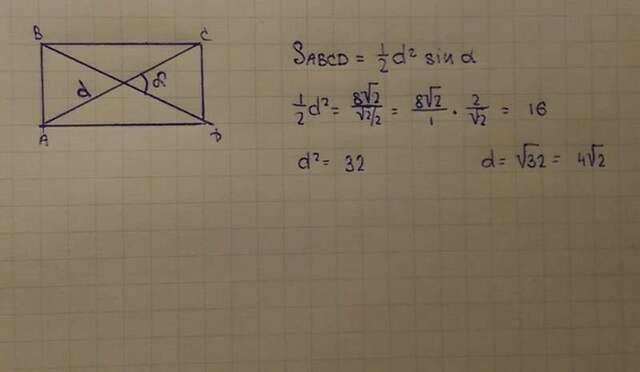 B C
d α
A D
S_ABCD = 1/2 d² sin α
1/2 d² = 8√2 / (√2/2) = 8√2/1 · 2/√2 = 16
d² = 32 d = √32 = 4√2